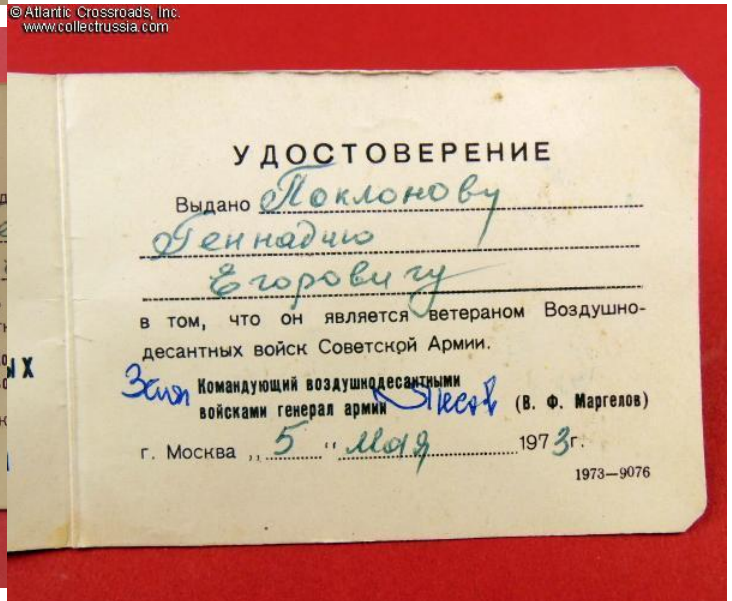 © Atlantic Crossroads, Inc.
www.collectrussia.com
УДОСТОВЕРЕНИЕ
Выдано Поклонову
Геннадию
Егоровичу
в том, что он является ветераном Воздушно-
десантных войск Советской Армии.
Командующий воздушнодесантными
войсками генерал армии (В. Ф. Маргелов)
г. Москва „ 5 “ мая 1973г.
1973—9076
ЫХ